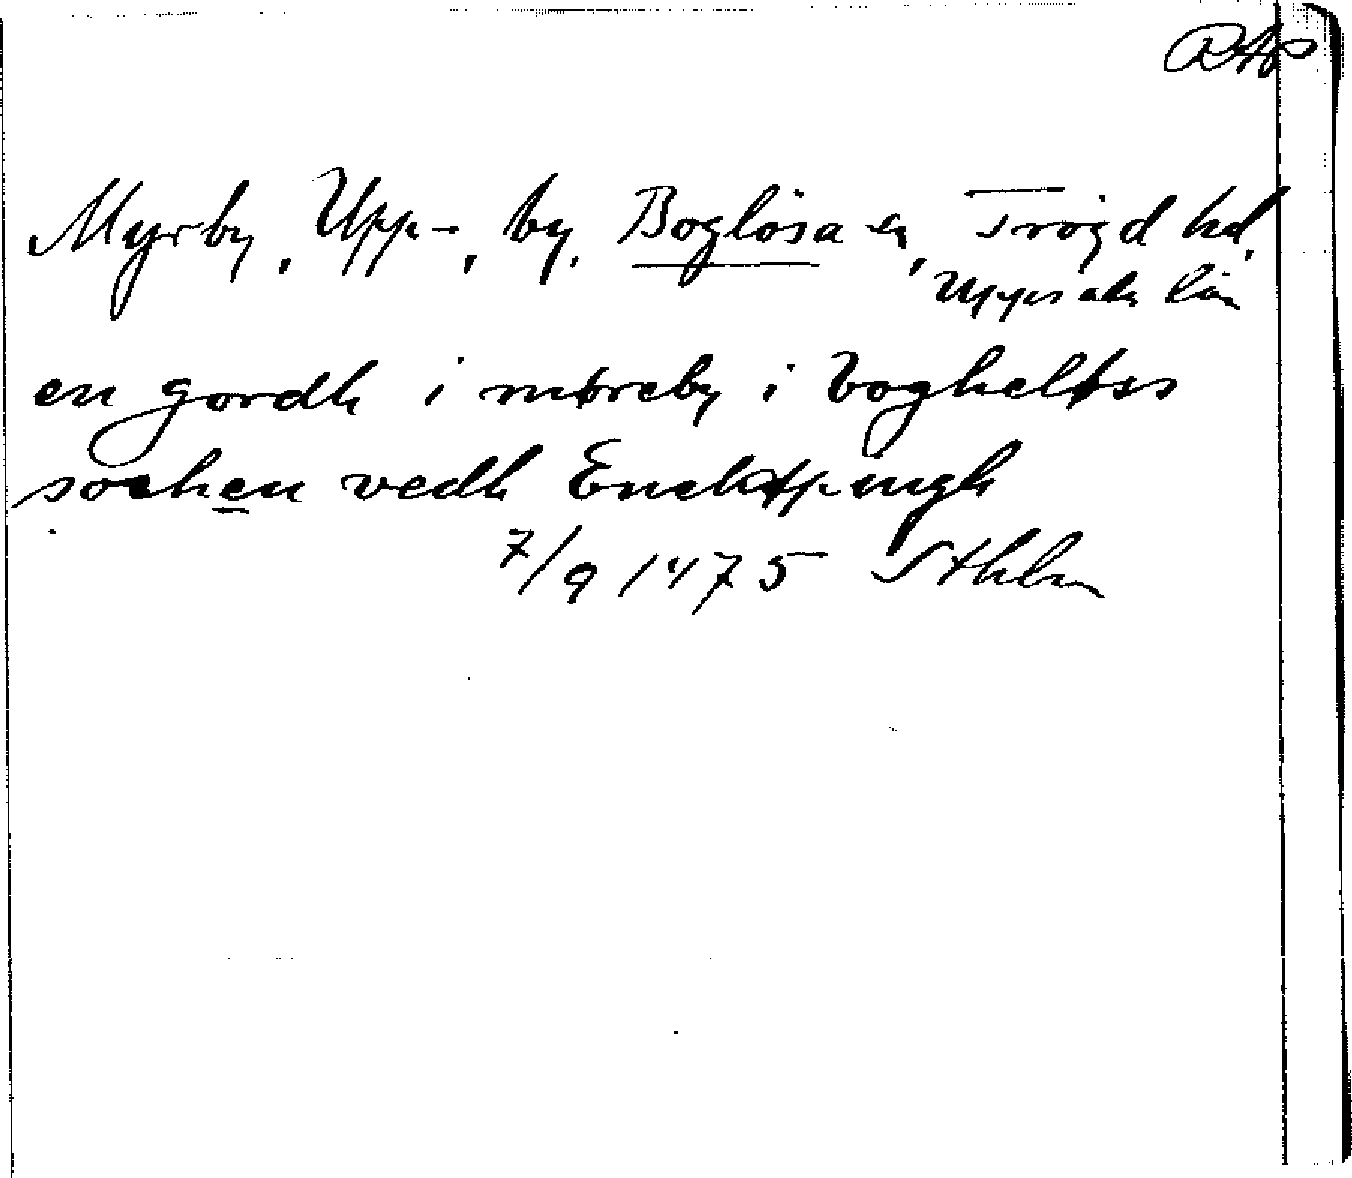 RAp
Myrby, Upp-, by, Boglösa sn, Trögd hd,
Uppsala län
en gordh i møreby i bogheløss
sochen vedh Enekøpungh
7/9 1475 Sthlm